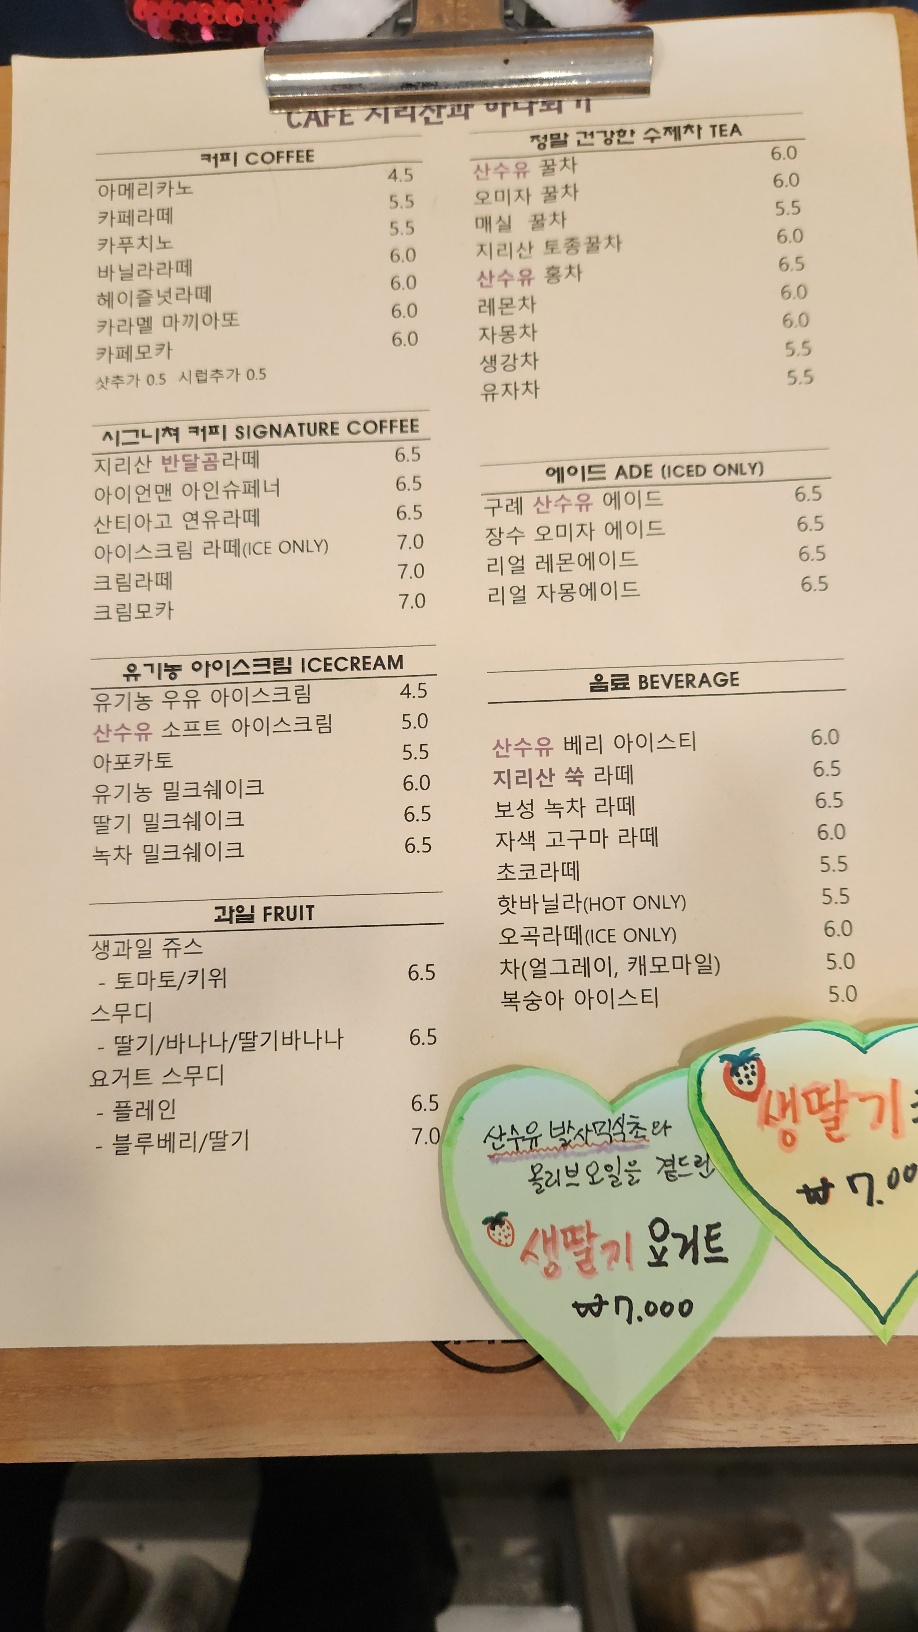 CAFE 지리산과 하나되기
커피 COFFEE
아메리카노 4.5
카페라떼 5.5
카푸치노 5.5
바닐라라떼 6.0
헤이즐넛라떼 6.0
카라멜 마끼아또 6.0
카페모카 6.0
샷추가 0.5 시럽추가 0.5
시그니쳐 커피 SIGNATURE COFFEE
지리산 반달곰라떼 6.5
아이언맨 아인슈페너 6.5
산티아고 연유라떼 6.5
아이스크림 라떼(ICE ONLY) 7.0
크림라떼 7.0
크림모카 7.0
유기농 아이스크림 ICECREAM
유기농 우유 아이스크림 4.5
산수유 소프트 아이스크림 5.0
아포카토 5.5
유기농 밀크쉐이크 6.0
딸기 밀크쉐이크 6.5
녹차 밀크쉐이크 6.5
과일 FRUIT
생과일 쥬스
- 토마토/키위 6.5
스무디
- 딸기/바나나/딸기바나나 6.5
요거트 스무디
- 플레인 6.5
- 블루베리/딸기 7.0
정말 건강한 수제차 TEA
산수유 꿀차 6.0
오미자 꿀차 6.0
매실 꿀차 5.5
지리산 토종꿀차 6.0
산수유 홍차 6.5
레몬차 6.0
자몽차 6.0
생강차 5.5
유자차 5.5
에이드 ADE (ICED ONLY)
구례 산수유 에이드 6.5
장수 오미자 에이드 6.5
리얼 레몬에이드 6.5
리얼 자몽에이드 6.5
음료 BEVERAGE
산수유 베리 아이스티 6.0
지리산 쑥 라떼 6.5
보성 녹차 라떼 6.5
자색 고구마 라떼 6.0
초코라떼 5.5
핫바닐라(HOT ONLY) 5.5
오곡라떼(ICE ONLY) 6.0
차(얼그레이, 캐모마일) 5.0
복숭아 아이스티 5.0
산수유 발사믹식초와
올리브오일을 곁드린
생딸기 요거트
₩7.000
생딸기
₩7.00